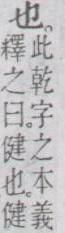 也。此乾字之本義
釋之曰。健也。健